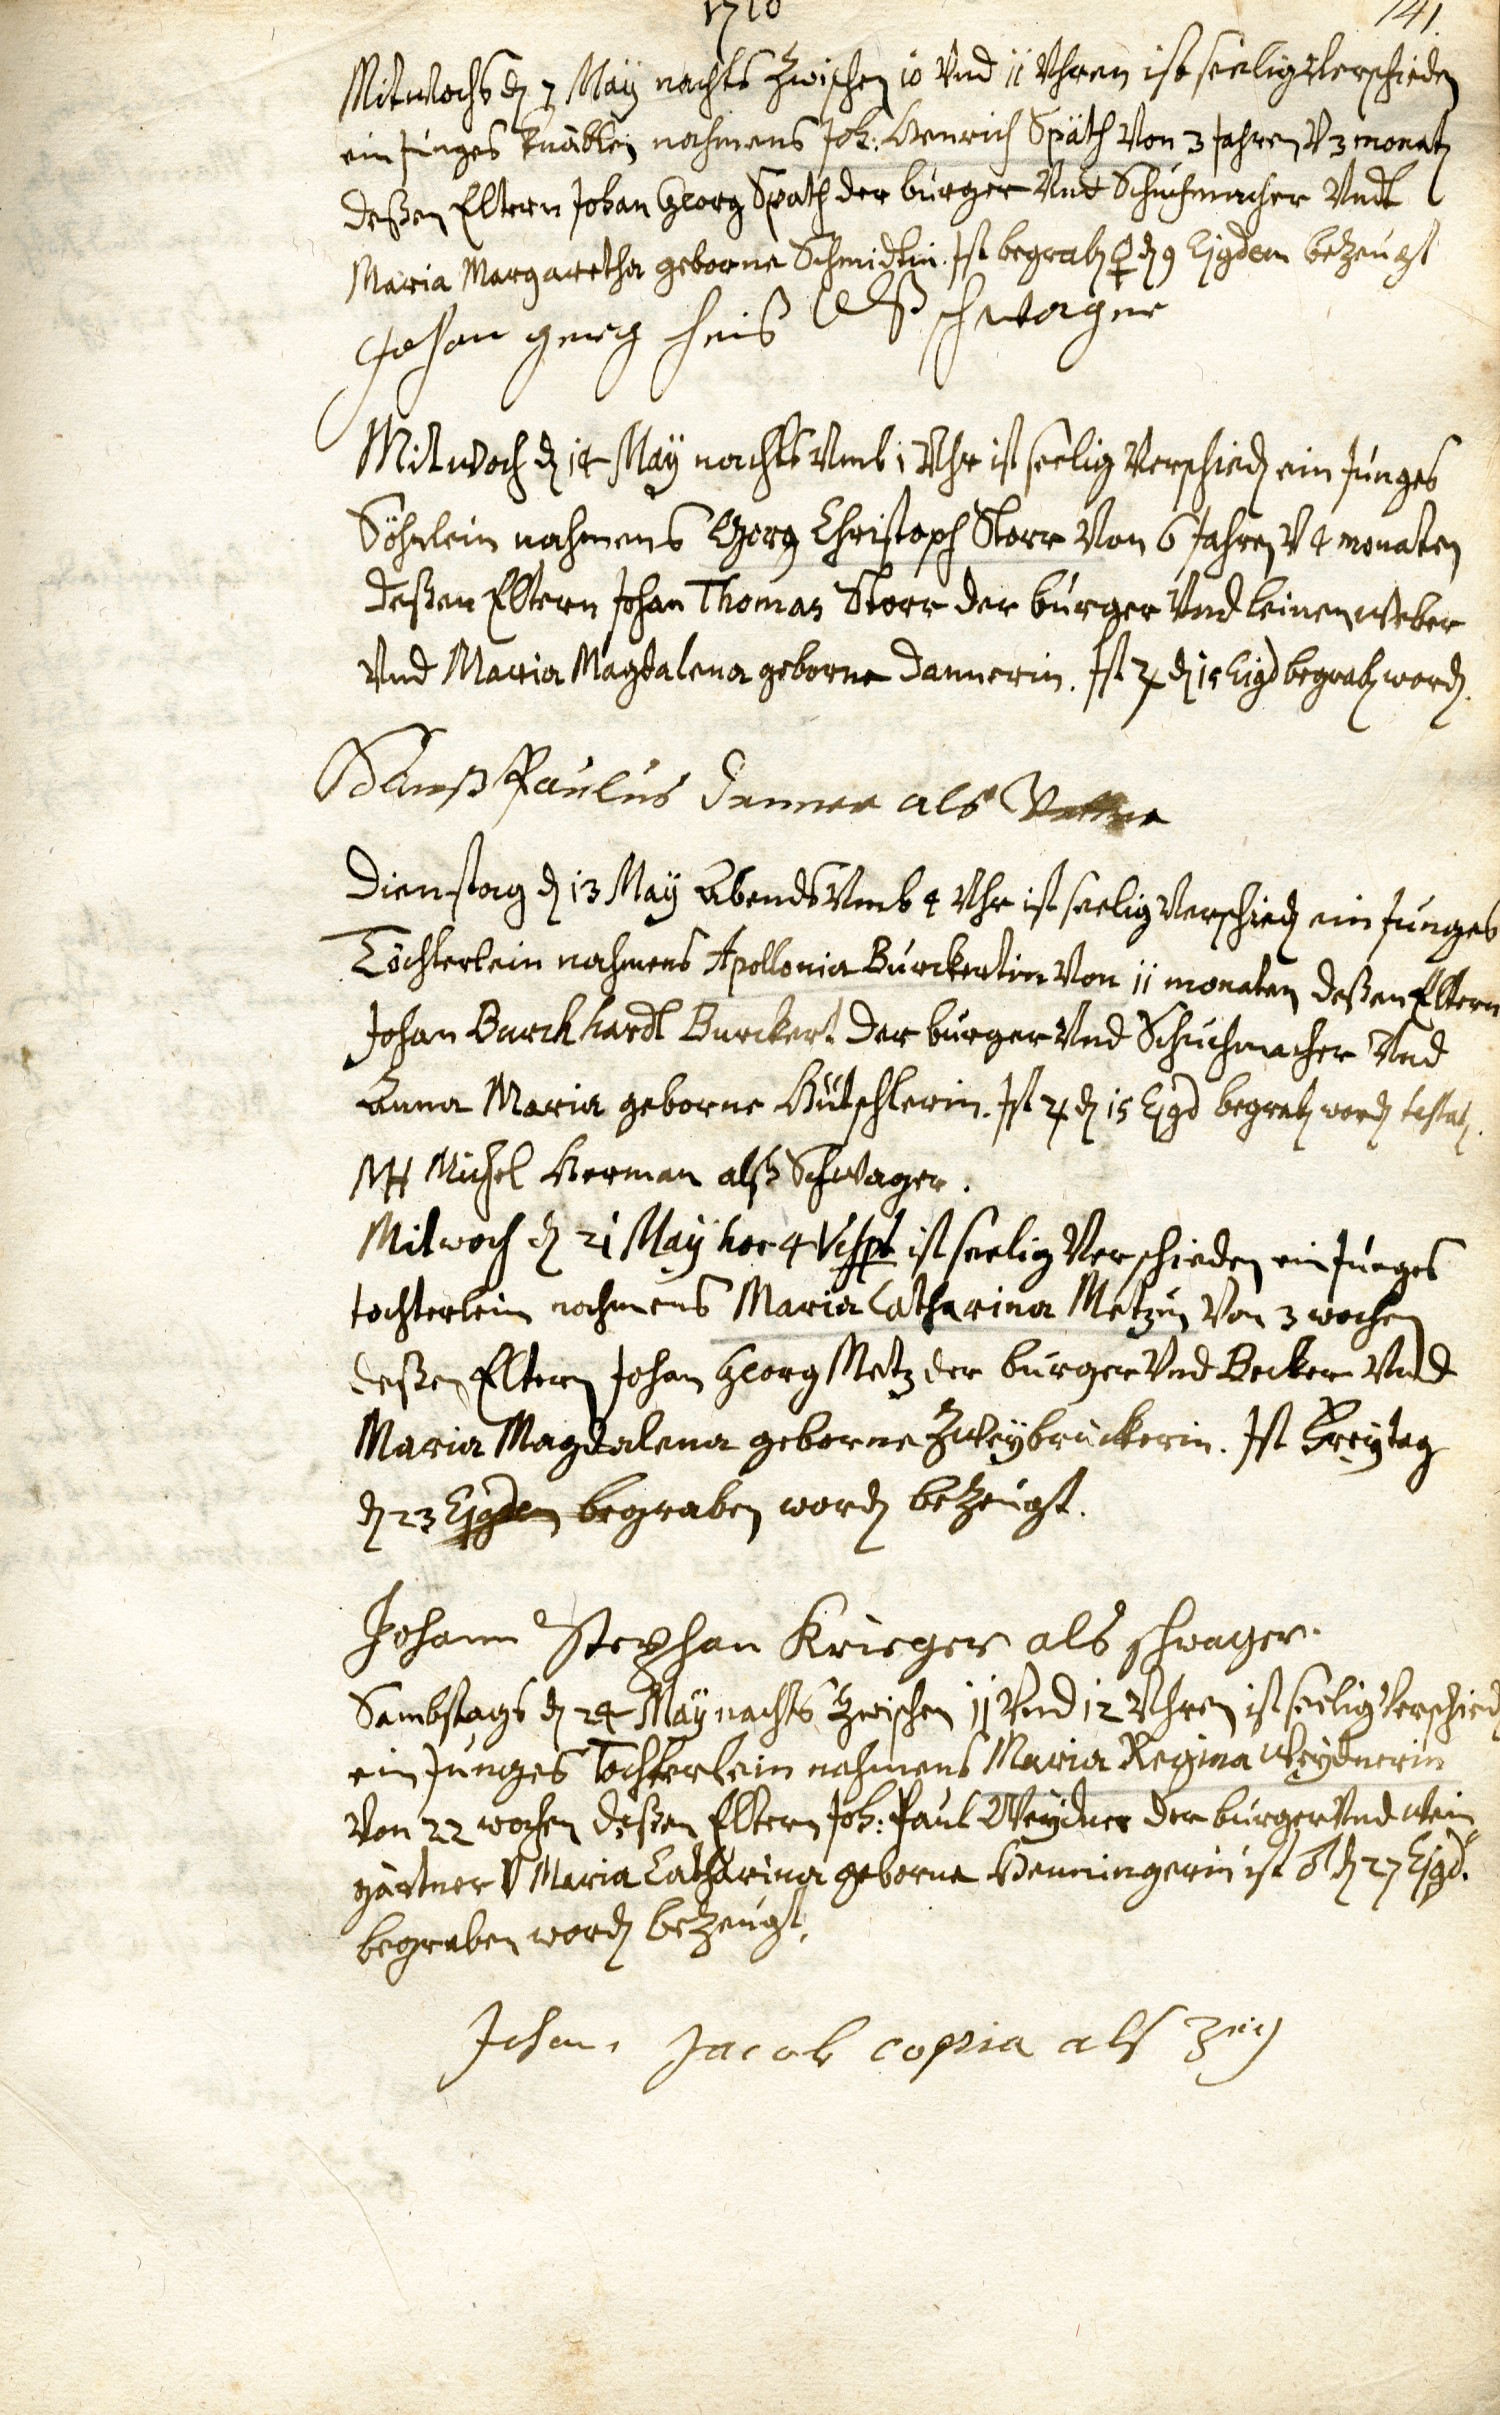 1710
141.
Mitwochs dẽ 7 Maÿ nachts Zwischen 10 Vnd 11 Vhren ist seelig Verschieden
ein Junges Knäblein nahmens Joh: Henrich Späth Von 3 Jahren V 3 monatẽ
deßen Eltern Johan Georg Späth der burger Vnd Schuhmacher Vndt
Maria Margaretha geborne Schmidtin. Ist begrabẽ ♀ dẽ 9 Ejgdem beZeugt
Johan georg heiß Alß schwager
Mitwoch dẽ 14 Maÿ nachts Vmb 1 Vhr ist seelig Verschiedẽ ein Junges
Söhnlein nahmens Georg Christoph Storr Von 6 Jahren V 4 monaten
deßen Eltern Johan Thomas Storr der burger Vnd leinenweber
Vnd Maria Magdalena geborne dannerin. Ist ♃ dẽ 15 Eigd begrabẽ wordẽ.
Hanß Paulus danner als Vetter
Dienstag dẽ 13 Maÿ Abends Vmb 4 Vhr ist seelig Verschiedẽ ein Junges
Töchterlein nahmens Apollonia Burckertin Von 11 monaten deßen Eltern
Johan Burckhardt Burckert der burger Vnd Schuhmacher Vnd
Anna Maria geborne Hütschlerin. Ist ♃ dẽ 15 Ejgd begrabẽ wordẽ testatẽ.
MH Michel Herman alß Schwager.
Mitwoch dẽ 21 Maÿ hor 4 Vesp ist seelig Verschieden ein Junges
tochterlein nahmens Maria Catharina Metzin Von 3 wochen
deßen Eltern Johan Georg Metz der burger Vnd Becker Vnd
Maria Magdalena geborne Zweÿbrückerin. Ist Freÿtag
dẽ 23 Ejgdem begraben wordẽ beZeugt.
Johann Stephan Krieger als schwager.
Sambstags dẽ 24 Maÿ nachts Zwischen 11 Vnd 12 Vhren ist seelig Verschiedẽ
ein Junges Tochterlein nahmens Maria Regina Weÿdnerin
Von 22 wochen deßen Eltern Joh: Paul Weÿdner der burger Vnd wein
gärtner V Maria Catharina geborne Henningerin ist ♂ dẽ 27 Ejgd.
begraben wordẽ beZeugt,
Johan Jacob copia als Zeig